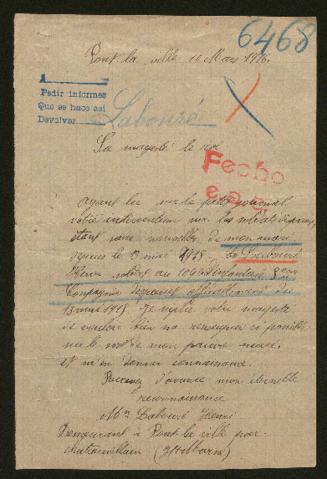 6468
Pont la ville 11 Mars 1916
Pedir informes
Que se hace asi
Devolver
Labouré
Sa majesté le roi
Fecho
ayant lu sur le petit journal
votre intervention sur les soldats disparus
étant sans nouvelles de mon mari
depuis le 8 mai 1915 le
Henri soldat au
Compagnie disparu
mai 1915 je votre majesté
de vouloir bien me renseigner si possible
sur le sort de mon pauvre mari
et m'en donner connaissance.
Recevez d'avance mon éternelle
reconnaissance
Labouré Henri
Demeurant à Pont la ville par
chateauvillain